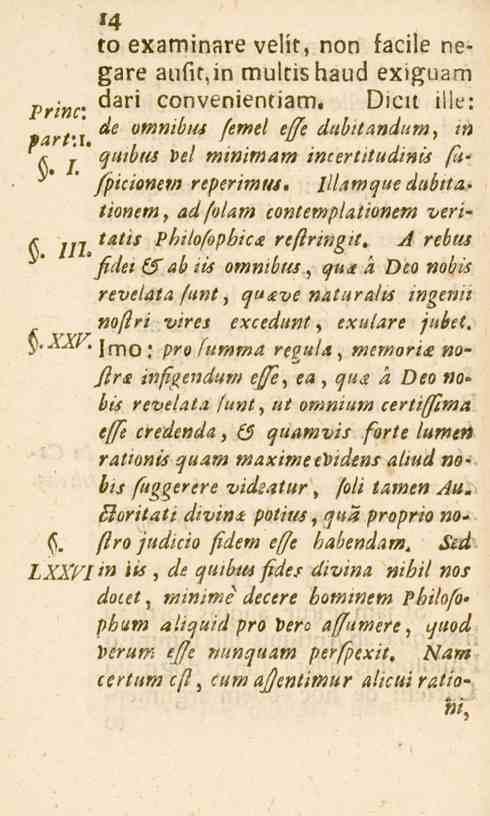 14
to examinare velit, non facile ne-
gare ausit, in multis haud exiguam
dari convenientiam. Dicit ille:
Princ:
part:1.
§. I.
de omnibus ſemel eſſe dubitandum, in
quibus vel minimam incertitudinis ſu-
ſpicionem reperimus. Illamque dubita-
tionem, ad ſolam contemplationem veri-
§. III.
tatis Philoſophicæ reſtringit. A rebus
fidei & ab iis omnibus, quæ à Deo nobis
revelata ſunt, quæve naturalis ingenii
noſtri vires excedunt, exulare jubet.
§. XXV.
Imo: pro ſumma regula, memoriæ no-
ſtræ infigendum eſſe, ea, quæ à Deo no-
bis revelata ſunt, ut omnium certiſſima
eſſe credenda, & quamvis forte lumen
rationis quam maxime evidens aliud no-
bis ſuggerere videatur, ſoli tamen Au-
ctoritati divinæ potius, quã proprio no-
§.
LXXVI
ſtro judicio fidem eſſe habendam. Sed
in iis, de quibus fides divina nihil nos
docet, minimè decere hominem Philoſo-
phum aliquid pro vero aſſumere, quod
verum eſſe nunquam perſpexit. Nam
certum eſt, cum aſſentimur alicui ratio-
ni,